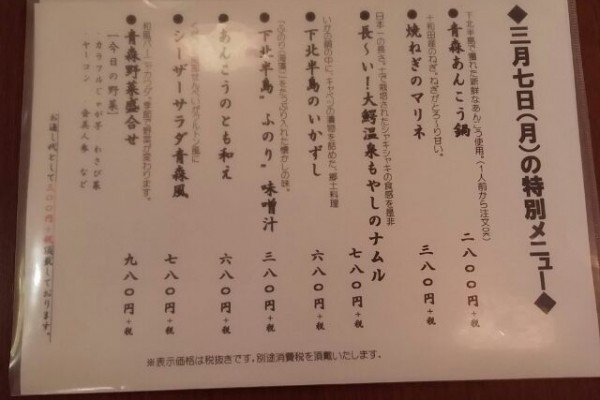 ◆三月七日(月)の特別メニュー◆
下北半島で獲れた新鮮なあんこう使用。(1人前から注文OK)
●青森あんこう鍋 二八〇〇円+税
十和田産のねぎ。ねぎがとろ~り甘い。
●焼ねぎのマリネ 三八〇円+税
日本一の長さ。土で栽培されたシャキシャキの食感を是非
●長~い!大鰐温泉もやしのナムル 七八〇円+税
いかの胴の中に、キャベツの漬物を詰めた、郷土料理
●下北半島のいかずし 六八〇円+税
ふのり(海藻)をたっぷり入れた懐かしの味。
●下北半島”ふのり”味噌汁 三八〇円+税
●あんこうのとも和え 六八〇円+税
●シーザーサラダ青森風 七八〇円+税
和風バーニャカウダ。季節で野菜が変わります。
●青森野菜盛合せ 九八〇円+税
【今日の野菜】
・カラフルじゃが芋 ・わさび菜
・ヤーコン ・金美人参 など
お通し代として三〇〇円+税頂戴しております。
※表示価格は税抜きです。別途消費税を頂戴いたします。